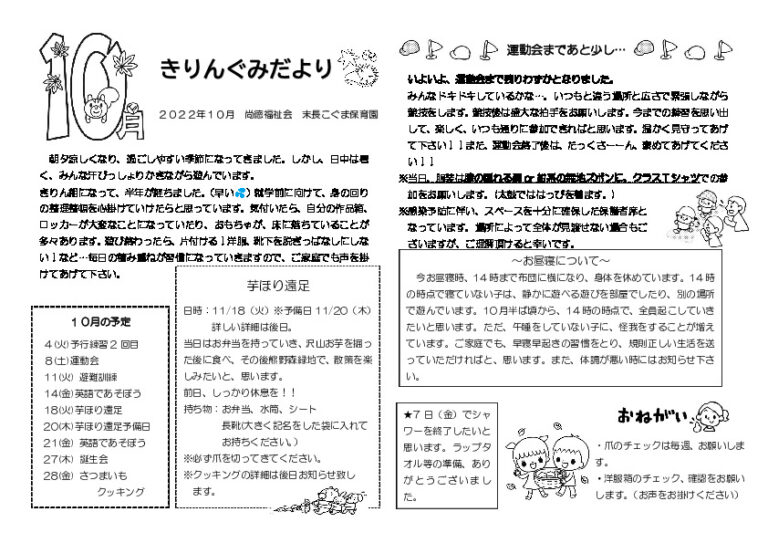 10月
きりんぐみだより
2022年10月 尚徳福祉会 末長こぐま保育園
朝夕涼しくなり、過ごしやすい季節になってきました。しかし、日中は暑
く、みんな汗びっしょりかきながら遊んでいます。
きりん組になって、半年が経ちました。(早い💦)就学前に向けて、身の回り
の整理整頓を心掛けていけたらと思っています。気付いたら、自分の作品箱、
ロッカーが大変なことになっていたり、おもちゃが、床に落ちていることが
多々あります。遊び終わったら、片付ける！洋服、靴下を脱ぎっぱなしにしな
い！など…毎日の積み重ねが習慣になっていきますので、ご家庭でも声を掛
けてあげて下さい。
10月の予定
4(火)予行練習2回目
8(土)運動会
11(火) 避難訓練
14(金)英語であそぼう
18(火)芋ほり遠足
20(木)芋ほり遠足予備日
21(金) 英語であそぼう
27(木) 誕生会
28(金) さつまいも
クッキング
芋ほり遠足
日時：11/18（火）※予備日11/20（木）
詳しい詳細は後日。
当日はお弁当を持っていき、沢山お芋を掘っ
た後に食べ、その後熊野森緑地で、散策を楽
しみたいと、思います。
前日、しっかり休息を！！
持ち物：お弁当、水筒、シート
長靴(大きく記名をした袋に入れて
お持ちください。)
※必ず爪を切ってきてください。
※クッキングの詳細は後日お知らせ致し
ます。
運動会まであと少し…
いよいよ、運動会まで残りわずかとなりました。
みんなドキドキしているかな…。いつもと違う場所と広さで緊張しながら
競技をします。競技後は盛大な拍手をお願いします。今までの練習を思い出
して、楽しく、いつも通りに参加できればと思います。温かく見守ってあげ
て下さい！！また、運動会終了後は、たっくさーーん、褒めてあげてくださ
い！！
※当日、服装は膝の隠れる紺or紺系の無地ズボンに、クラスTシャツでの参
加をお願いします。(太鼓でははっぴを着ます。)
※感染予防に伴い、スペースを十分に確保した保護者席と
なっています。場所によって全体が見渡せない場合もご
ざいますが、ご理解頂けると幸いです。
～お昼寝について～
今お昼寝時、14時まで布団に横になり、身体を休めています。14時
の時点で寝ていない子は、静かに遊べる遊びを部屋でしたり、別の場所
で遊んでいます。10月半ば頃から、14時の時点で、全員起こしていき
たいと思います。ただ、午睡をしていない子に、怪我をすることが増え
ています。ご家庭でも、早寝早起きの習慣をとり、規則正しい生活を送
っていただければと、思います。また、体調が悪い時にはお知らせ下さ
い。
★7日（金）でシャ
ワーを終了したいと
思います。ラップタ
オル等の準備、あり
がとうございまし
た。
おねがい
・爪のチェックは毎週、お願いしま
す。
・洋服箱のチェック、確認をお願い
します。（お声をお掛けください）